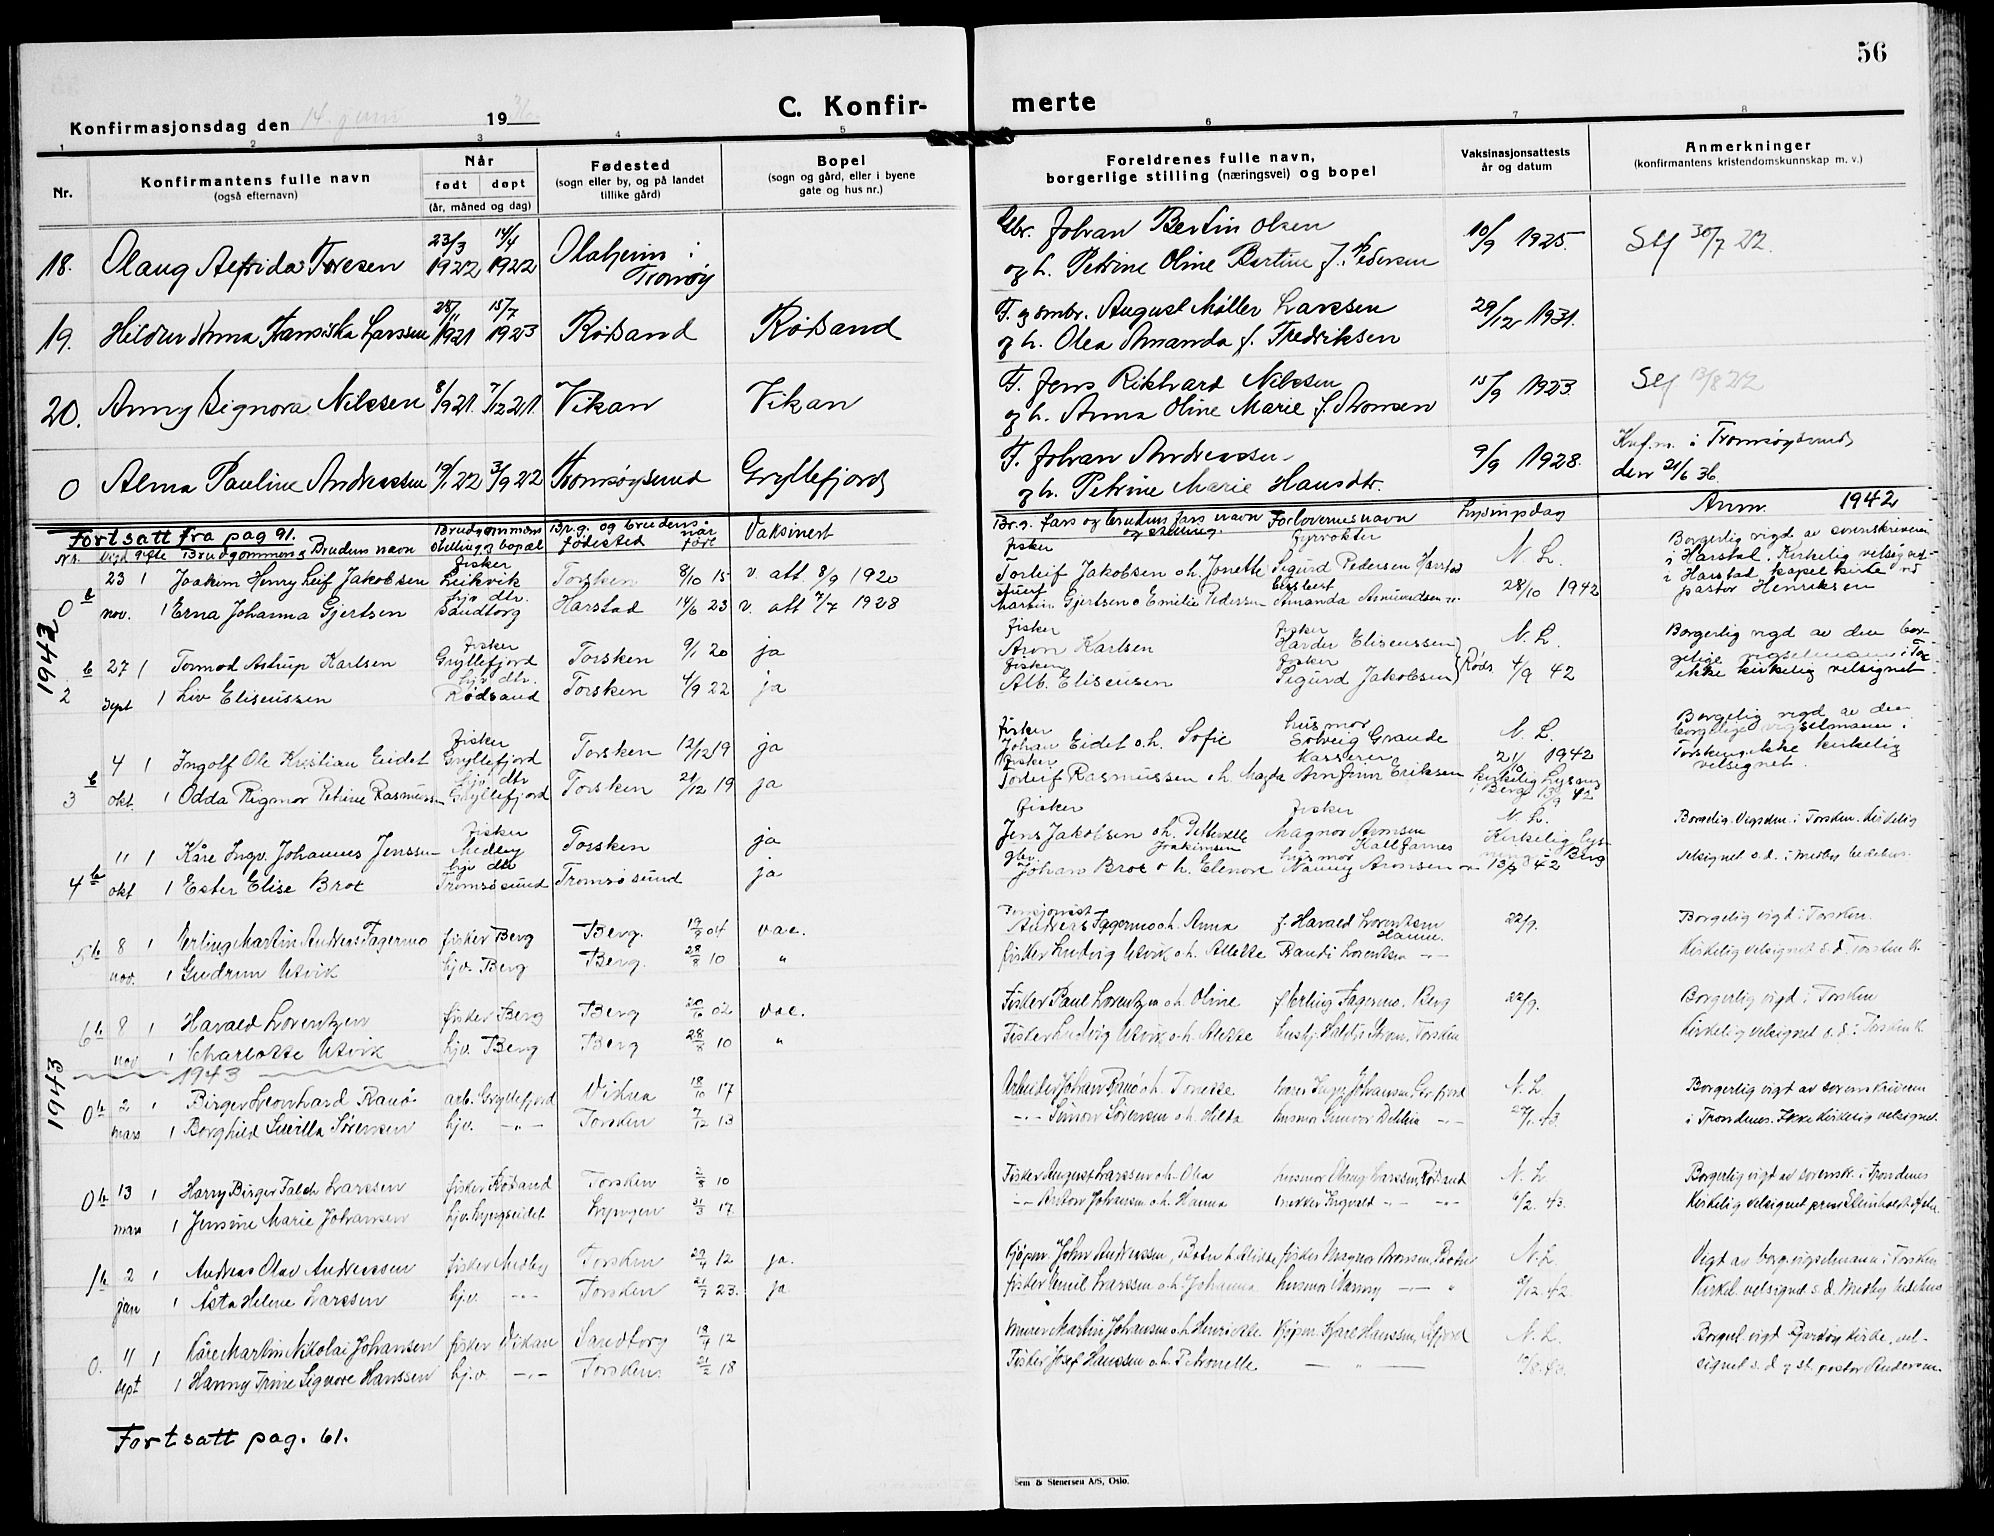 56
C. Konfir- merte
Konfirmasjonsdag den 14. juni 1936
1 2 3 4 5 6 7 8
Nr.
Konfirmantens fulle navn
(også efternavn)
Når
født døpt
(år, måned og dag)
Fødested
(sogn eller by, og på landet
tillike gård)
Bopel
(sogn og gård, eller i byene
gate og hus nr.)
Foreldrenes fulle navn,
borgerlige stilling (næringsvei) og bopel
Vaksinasjonsattests
år og datum
Anmerkninger
(konfirmantens kristendomskunnskap m. v.)
18. Olaug Alfrida Toresen 23/3 1922 14/4 1922 Olaheim i Tranøy Gbr. Johan Bertin Olsen 10/9 1925. 30/7 22.
og h. Petrine Oline Bertine f. Pedersen
19. Hildur Anna Fransiska Larssen 1921 15/7 1923 Rødsand Rødsand F. og smbr. August Møller Larssen 29/12 1931.
og h. Olea Amanda f. Fredriksen
20. Anny Signora Nilssen 8/9 21. 7/12 21 Vikan Vikan F. Jens Rikhard Nilssen 15/9 1923. 13/8 22
og h. Anna Oline Marie f. Aronsen
0 Alma Pauline Andreassen 19/1 22 3/9 22 Tromsøysund Gryllefjord F. Johan Andreassen 9/9 1928. Knf.n. i Tromsøysund
og h. Petrine Marie Hansdtr. den 21/6 36.
Fortsatt fra pag 91. Brudgommens stilling og bopæl Br.g. og brudens fødested når født Vaksinert Br.g. fars og brudens fars navn og stilling. Forlovernes navn Lysningsdag Anm. 1942
Nr. Vigd gifte Brudgommens Brudens navn
1942
0 b 23 1 Joakim Henry Leif Jakobsen fisker Leikvik Torsken 8/10 15 v. att. 8/9 1920 fisker Torleif Jakobsen o h. Jonette Fyrvokter Sigurd Pedersen Harstad N. L. Borgerlig vigd av sorenskriveren
i Harstad. Kirkelig velsignet
nov. 1 Erna Johanna Gjertsen hjv. dtr. Sandtorg Harstad 14/6 23 v. att 7/7 1928 Martin Gjertsen o Emilie Pedersen Amanda Amundsen 28/10 1942 i Harstad kapel kirke v/
pastor Henriksen
2 b 27 1 Tormod Astrup Karlsen fisker Gryllefjord Torsken 9/1 20 ja fisker Aron Karlsen fisker Hander Eliseussen N. L. Borgerlig vigd av den bor-
gelige vigselmann i Tor
sept 1 Liv Eliseussen hjv. dtr. Rødsand Torsken 4/9 22 ja fisker Alb. Eliseusen fisker Sigurd Jakobsen Røds. 4/9 42 ikke kirkelig velsignet.
3 b 4 1 Ingolf Ole Kristian Eidet fisker Gryllefjord Torsken 12/12 19 ja fisker Johan Eidet o.h. Sofie husmor Solveig Grande N. L. Borgelig vigd av den
borgelige vigselmann i
okt. 1 Odda Rigmor Petrine Rasmussen hjv. dtr Gryllefjord Torsken 21/12 19 ja fisker Torleif Rasmussen o h Magda kasserer Arnfinn Eriksen 2/10 1942 Torsken, ikke kirkelig
kirkelig Lysning i Berg 13/9 42 velsignet.
4 b 11 1 Kåre Ingv. Johannes Jenssen fisker Medby Torsken ja fisker Jens Jakobsen o h. Petterelle Joakimsen fisker Magnor Aronsen Kaldfarnes N. L. Borgelig. Vigsden. i Torsken. kirkelig
okt 1 Ester Elise Brox hjv dtr Tromsøsund Tromsøsund ja gbr. Johan Brox o h. Elenore husmor Nanny Aronsen Kirkelig lysning i Berg 13/9 42 velsignet s.d. i Medby bedehus.
5 b 8 1 Erling Martin Andreas Fagermo fisker Berg Berg. 04 vac. Pensjonist Andreas Fagermo o.h. Anna f. Harald Lorentzen Hamn. 22/9. Borgelig vigd i Torsken.
nov. 1 Gudrun Utvik hjv. Berg Berg. 28/8 10 " fisker Ludvig Utvik o.h. Alette Randi Lorentzen —"— Kirkelig velsignet s.d. Torsken K.
6 b 8 1 Harald Lorentzen fisker Berg Berg 02 vac. Fisker Paul Lorentzen o.h. Oline f. Erling Fagermo. Berg 22/9. Borgerlig vigd i Torsken
nov 1 Charlotte Utvik hjv. Berg Berg 28/8 10 " Fisker Ludvig Utvik o.h. Alette Torsken Kirkelig velsignet s.d. i Torsken K.
1943
1943
0 b 2 1 Birger Leonhard Ranø arb. Gryllefjord Vikna 18/10 17 Arbeider Johan Ranø o.h. Tonette Johansen N. L. Borgerlig vigt av sorenskriveren
mars 1 Borghild Sørensen hjv. —"— Torsken 7/12 13 —"— Simon Sørensen o.h. Hilda husmor Gunvor —"— 27/1. 43. i Trondenes. Ikke kirkelig velsignet.
0 b 13 1 Harry Birger Falch Larssen fisker Rødsand Torsken 2/8 10 Fisker August Larssen o.h. Olea husmor Olaug Larssen, Rødsand N. L. Bogerlig vigt av sorensk. i Trondenes
mars 1 Jensine Marie Johansen hjv. Lyngseidet Lyngen 31/3 17. —"— Anton Johansen o.h. Hanna Ingvald —"— 6/2. 43. Kirkelig velsignet
1 b 2 1 Andreas Olav Andreassen fisker Medby Torsken 29/4 12 ja. Kjøpm. John Andreassen, o.h. Alette fisker Magnor Aronsen, N. L. Vigt av borg. vigselmann i Torsken
jan 1 Åsta Helene Larssen hjv. —"— Torsken 21/7 23. ja fisker Emil Larssen o.h. Johanna husmor Nanny —"— 5/12. 42. Kirkel. velsignet s.d. Medby bedehus
0. 11 1 Kåre Martin Nikolai Johansen fisker Vikan Sandtorg 19/4 12 Murer Martin Johansen o.h. Henriette Kjøpm. Karl Hanssen, N. L. Borgel. vigt kirke, vel-
sept 1 Hanny Trine Signore Hanssen hj.v —"— Torsken 21/2 18 Fisker Josef Hanssen o.h. Petronelle — " — signet s.d. av st. pastor Andersen.
Fortsatt pag. 61.
Sem & Stenersen A/S, Oslo.